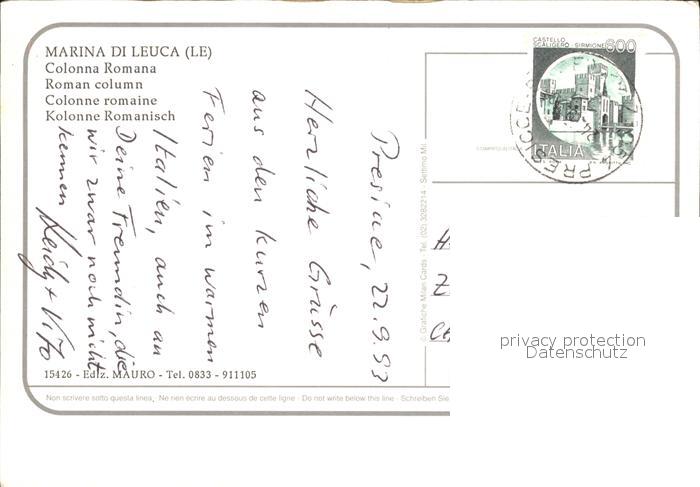 MARINA DI LEUCA (LE)
Colonna Romana
Roman column
Colonne romaine
Kolonne Romanisch
Presicce, 22.9.93
Herzliche Grüsse
aus den kurzen
Ferien im warmen
Italien, auch an
Deine Freundin, die
wir zwar noch nicht
kennen Heidy + Vito
15426 - Ediz. MAURO - Tel. 0833 - 911105
Non scrivere sotto questa linea, Ne rien écrire au dessous de cette ligne - Do not write below this line - Schreiben Sie
© Grafiche Milan Cards - Tel. (02) 3282214 - Settimo Mil.
CASTELLO
SCALIGERO - SIRMIONE
600
ITALIA
PRESICCE
privacy protection
Datenschutz